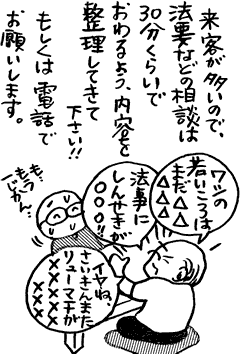 来客が多いので、
法要などの相談は
30分くらいで
おわるよう、内容を
整理してきて
下さい!!
もしくは電話で
お願いします。
ワシの
若いころは
まだ△△
△△△
法事に
しんせきが
○○○!!
イヤね、
さいきんまた
リューマチが
×××××
×××××
も、
もう
一じかん、